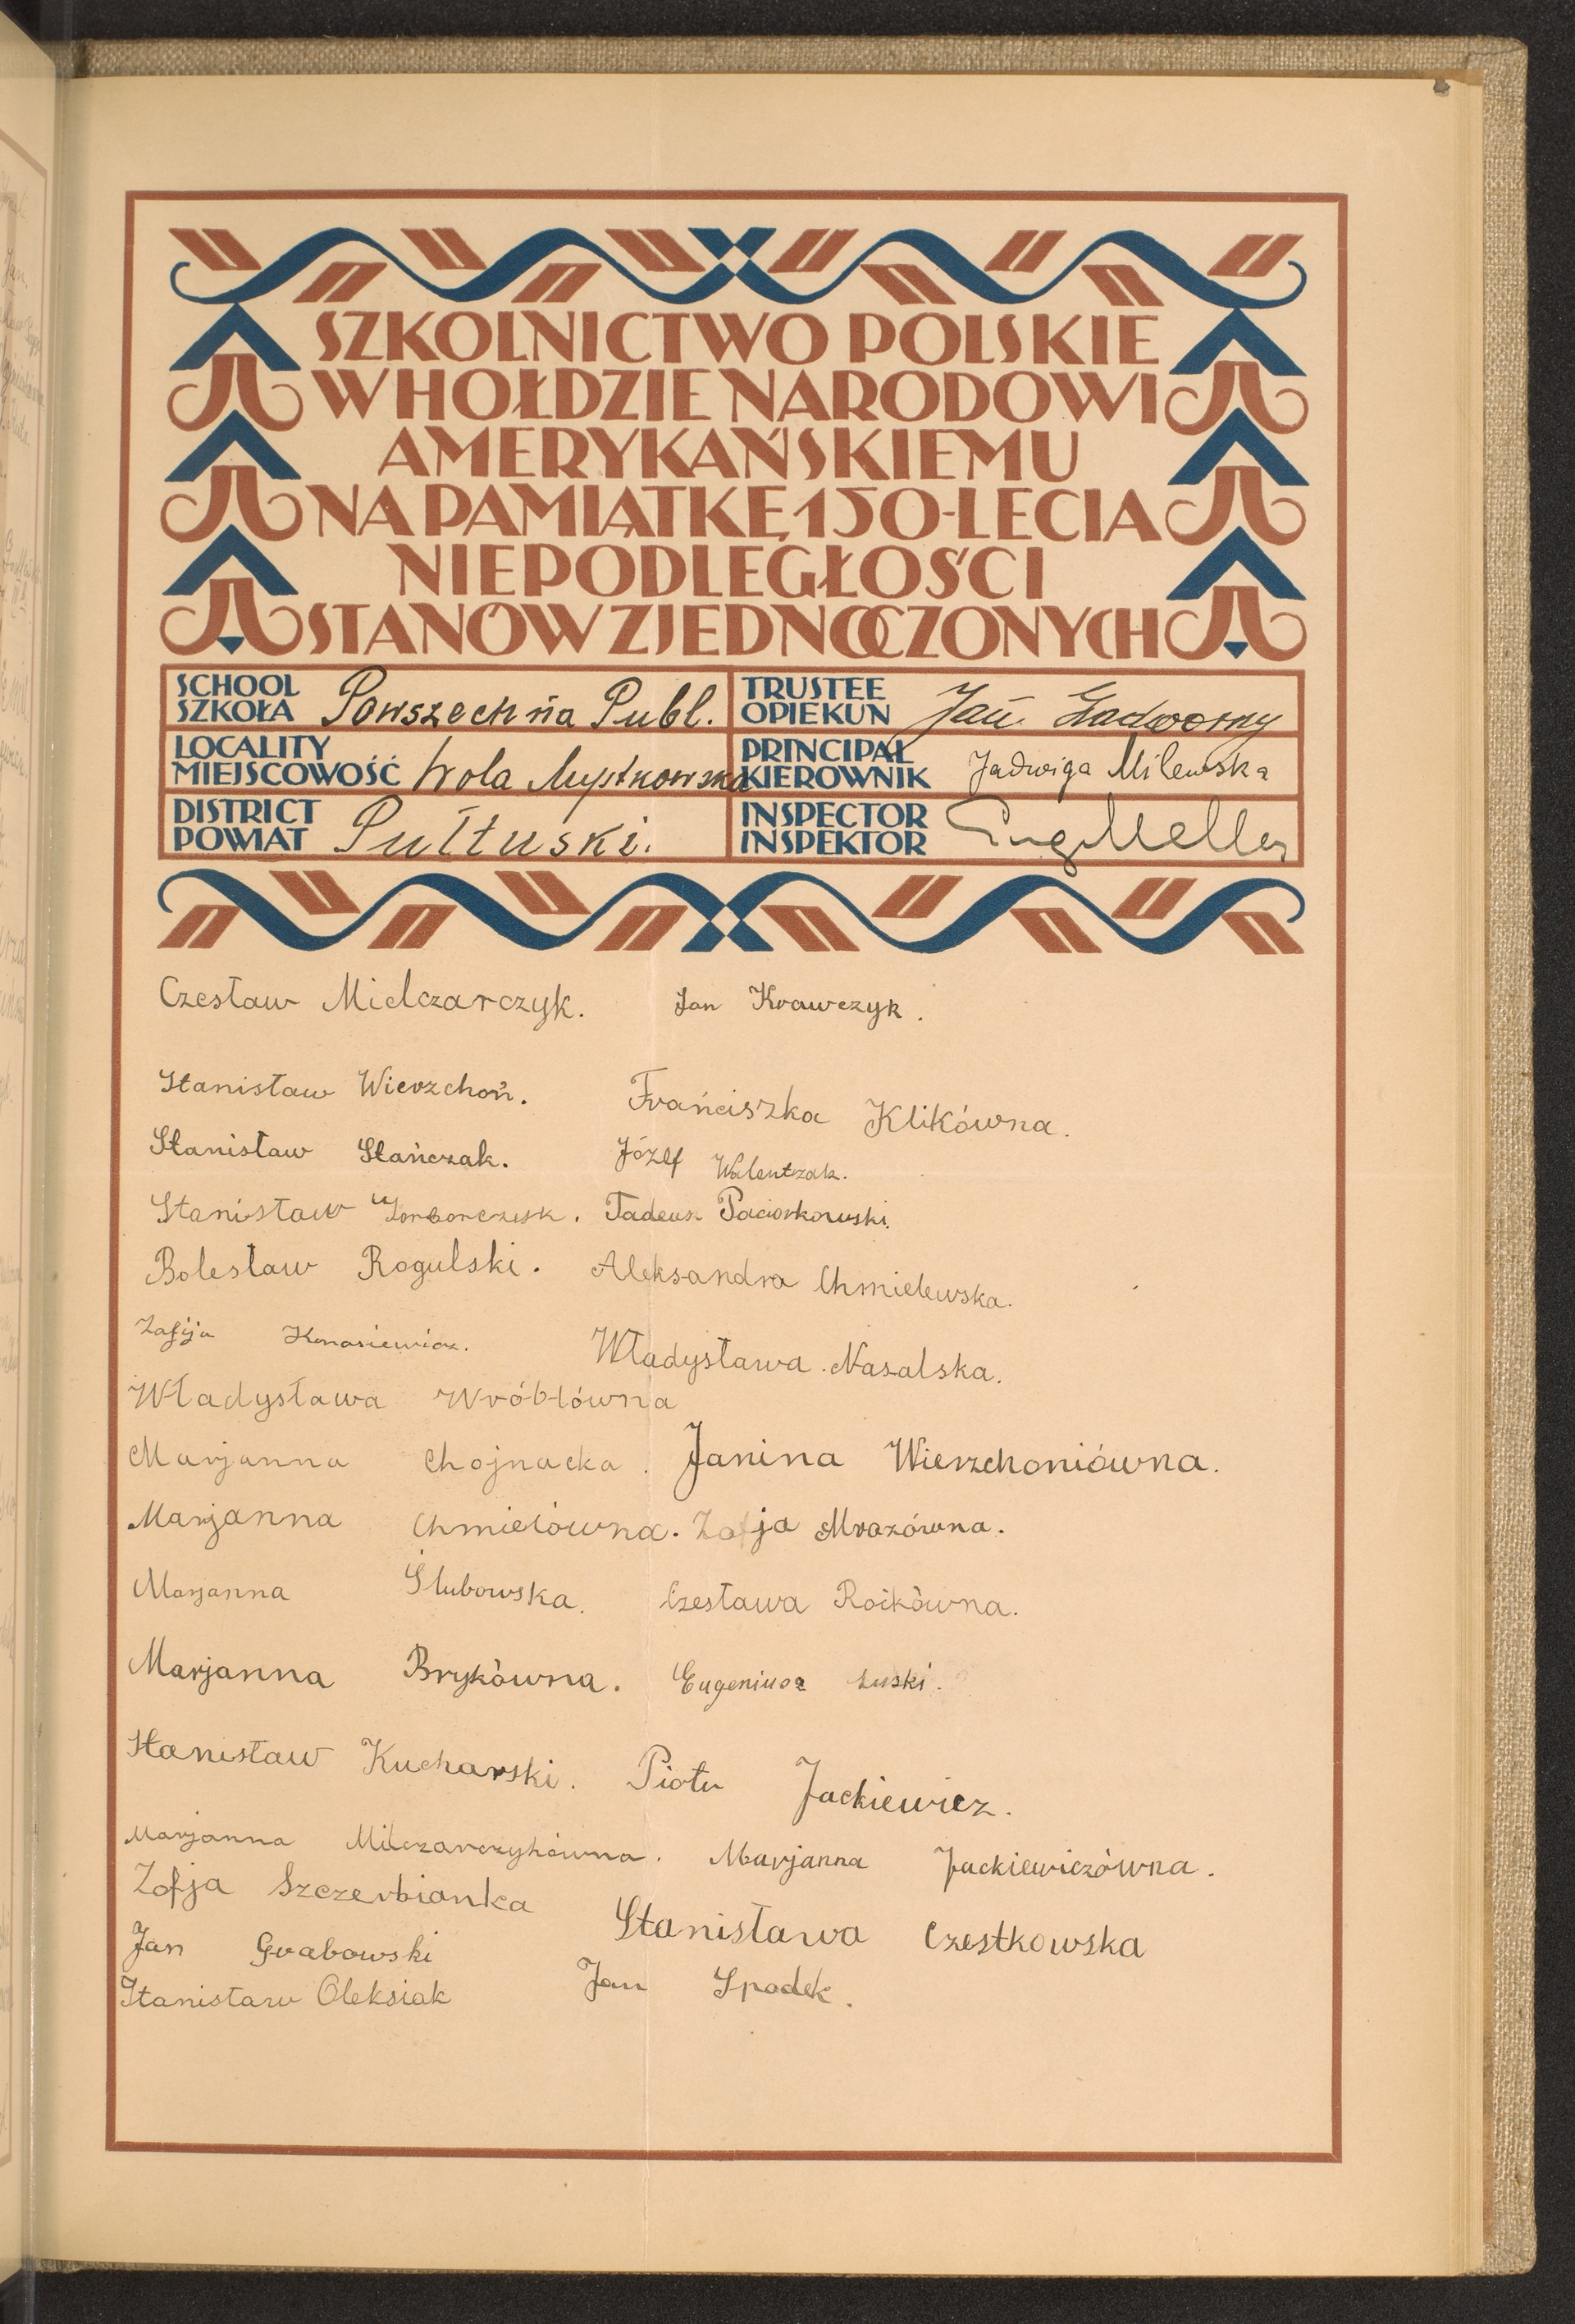 SZKOLNICTWO POLSKIE
W HOŁDZIE NARODOWI
AMERYKAŃSKIEMU
NA PAMIĄTKĘ 150-LECIA
NIEPODLEGŁOŚCI
STANÓW ZJEDNOCZONYCH
SCHOOL
SZKOŁA Powszechna Publ.
TRUSTEE
OPIEKUN Jan Zadworny
LOCALITY
MIEJSCOWOŚĆ Wola Mystkowska
PRINCIPAL
KIEROWNIK Jadwiga Milewska
DISTRICT
POWIAT Pułtuski.
INSPECTOR
INSPEKTOR
Czesław Mielczarczyk. Jan Krawczyk.
Stanisław Wierzchoń. Franciszka Klikówna.
Stanisław Stańczak. Józef Walentzak.
Stanisław Tadeusz Paciorkowski.
Bolesław Rogulski. Aleksandra Chmielewska.
Zofija Konasiewicz. Władysława Nasalska.
Władysława Wróblówna
Marjanna Chojnacka. Janina Wierzchoniówna.
Marjanna Chmielówna. Zofja Mrozówna.
Marjanna Ślubowska. Czesława Roikówna.
Marjanna Brykówna. Eugeniusz Łuski.
Stanisław Kucharski. Piotr Jackiewicz.
Marjanna Milczarczykówna. Marjanna Jackiewiczówna.
Zofja Szczerbianka Stanisława Czestkowska
Jan Grabowski Jan Spadek.
Stanisław Oleksiak